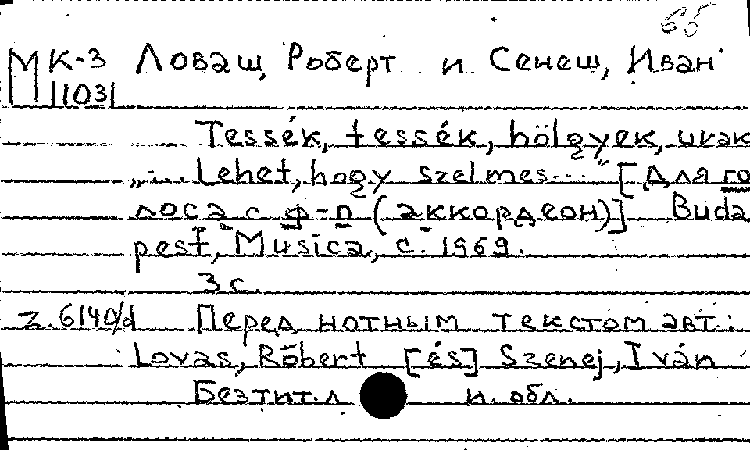 65
МК-3 Ловаш, Роберт и Сенеш, Иван
11031
Tessék, tessék, hölgyek, urak
„... Lehet, hogy szelmes..." [Для го
лоса с ф-п (аккордеон)] Buda
pest, Musica, c. 1969.
3 с.
Z.6140/d Перед нотным текстом авт.:
Lovas, Róbert [és] Szenej, Iván
Без тит. л и. обл.